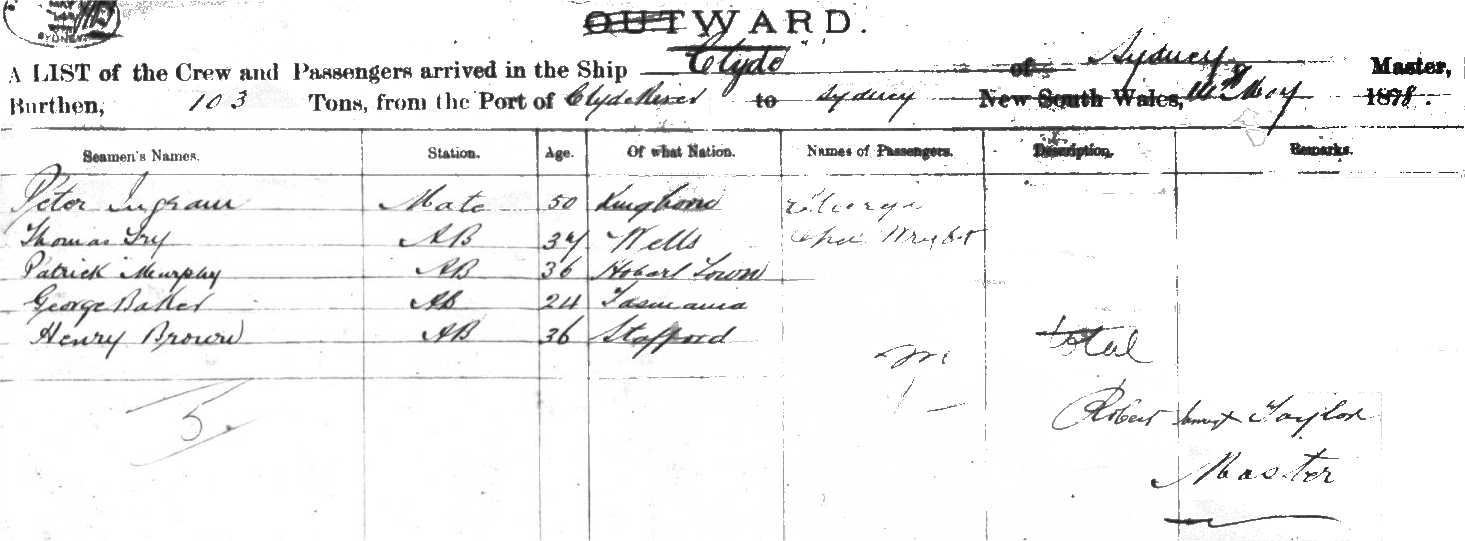 MAY
SYDNEY
OUTWARD.
A LIST of the Crew and Passengers arrived in the Ship Clyde of Sydney Master,
Burthen, 103 Tons, from the Port of Clyde River to Sydney New South Wales, May 1878.
Seamen's Names. Station. Age. Of what Nation. Names of Passengers. Description. Remarks.
Peter Ingram Mate 50 Kinghorn
Thomas Fry AB 37 Wells Wright
Patrick Murphy AB 36 Hobart Town
George Baker AB 24 Tasmania
Henry Brown AB 36 Stafford total
5
Robert Taylor
Master